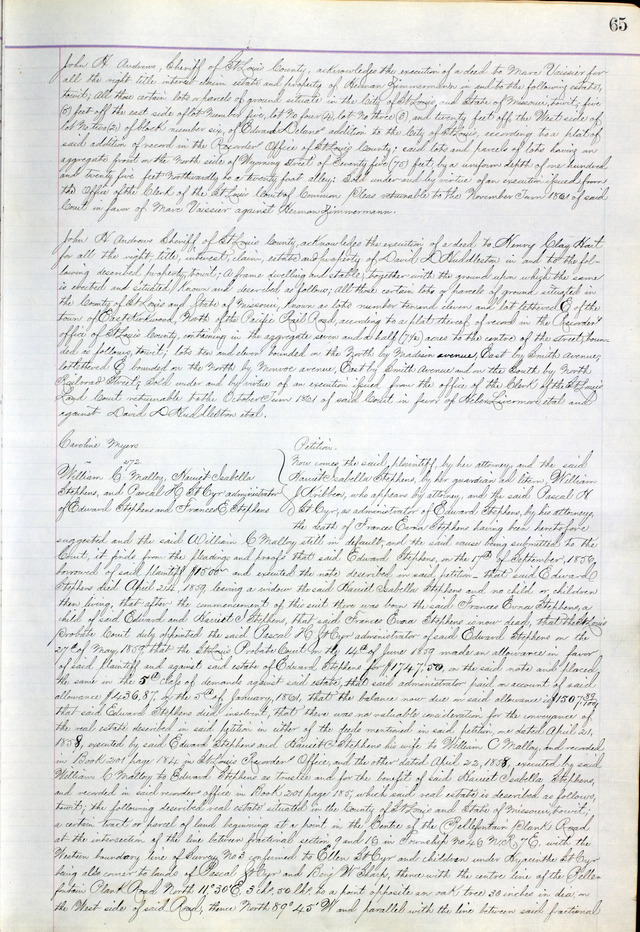 65
John H Andrews, Sheriff of St Louis County, acknowledges the execution of a deed to Marc Vaissier for
all the right title interest claim estate and property of Herman Zimmermann in and to the following estate,
towit; All those certain lots or parcels of ground situate in the City of St Louis, and State of Missouri, towit; five
(5) feet off the east side of lot Number five, lot No four (4), lot No three (3) and twenty feet off the West side of
lot No two (2) of block number six, of Edward addition to the City of St Louis, according to a plat of
said addition of record in the Recorders Office of St Louis County; said lots and parcels of lots having an
aggregate front on the North side of Wyoming Street of Seventy five (75) feet, by a uniform depth of one hundred
and twenty five feet Northwardly to a twenty foot alley; Sold under and by virtue of an execution issued from
the Office of the Clerk of the St Louis Court of Common Pleas returnable to the November Term 1861 of said
Court in favor of Marc Vaissier against Herman Zimmermann.
John H Andrews Sheriff of St Louis County, acknowledges the execution of a deed to Henry Clay Hart
for all the right, title, interest, claim, estate and property of David D Huddleston in and to the fol-
lowing described property, towit; A frame dwelling and stable, together with the ground upon which the same
is erected and situated, known and described as follows; All those certain lots or parcels of ground situated in
the County of St Louis and State of Missouri, known as lots number ten and eleven and lot lettered E, of the
town of East Kirkwood, North of the Pacific Rail Road, according to a plat thereof of record in the Recorders
office of St Louis County, containing in the aggregate seven and a half (7½) acres to the centre of the streets, boun-
ded as follows, towit; lots ten and eleven bounded on the North by Madison avenue, East by Smith Avenue;
lot lettered E bounded on the North by Monroe avenue, East by Smith Avenue and on the South by North
Railroad Street; Sold under and by virtue of an execution issued from the office of the Clerk of the St Louis
Land Court returnable to the October Term 1861 of said Court in favor of Livermore etal and
against David D Huddleston etal.
Caroline Myers
vs
William C Malley, Harriet Isabella
Stephens, and Pascal H St Cyr administrator
of Edward Stephens and Frances E Stephens
Petition.
Now comes the said plaintiff by her attorney, and the said
Harriet Isabella Stephens, by her guardian ad litem, William
J who appears by attorney, and the said Pascal H
St Cyr, as administrator of Edward Stephens, by his attorney,
the death of Frances Evora Stephens having been heretofore
suggested and the said William C Malley still in default, and the said cause being submitted to the
Court, it finds from the pleadings and proofs that said Edward Stephens, on the 17th of September, 1856,
borrowed of said plaintiff $1500 and executed the note described in said petition that said Edward
Stephens died April 24, 1859, leaving a widow the said Harriet Isabella Stephens and no child or children
then living, that after the commencement of this suit there was born the said Frances Evora Stephens, a
child of said Edward and Harriet Stephens, that said Frances Evora Stephens is now dead, that the St Louis
Probate Court duly appointed the said Pascal H St Cyr administrator of said Edward Stephens on the
27 of May, 1859 that the St Louis Probate Court on the 14th of June 1859 made an allowance in favor
of said plaintiff and against said estate of Edward Stephens for $1747,50, on the said note and placed
the same in the 5th Class of demands against said estate, that said administrator paid on account of said
allowance $436,87, on the 5th of January, 1861, that the balance now due on said allowance is
that said Edward Stephens died insolvent, that there was no valuable consideration for the conveyance of
the real estate described in said petition in either of the deeds mentioned in said petition, one dated April 21,
1858, executed by said Edward Stephens and Harriet Stephens his wife to William C Malley, and recorded
in Book 201 page 184 in St Louis Recorders Office, and the other dated April 22, 1858, executed by said
William C Malley to Edward Stephens as trustee and for the benefit of said Harriet Isabella Stephens,
and recorded in said recorders office in Book 201 page 185, which said real estate is described as follows,
towit; the following described real estate situated in the County of St Louis and State of Missouri, towit;
a certain tract or parcel of land beginning at a point in the Centre of the Bellefontain Plank Road,
at the intersection of the line between fractional sections 9 and 16 in Township No 46 N. R. 7 E. with the
Western boundary line of Survey No 3 confirmed to Ellen St Cyr and children under Hyacinthe St Cyr
being also corner to lands of Pascal St Cyr and Benj W thence with the centre line of the Bellefon-
fontain Plank Road North 11° 30' E, 3 chs, 50 lks to a point opposite an oak tree 30 inches in dia, on
the West side of said Road, thence North 89° 45' W and parallel with the line between said fractional